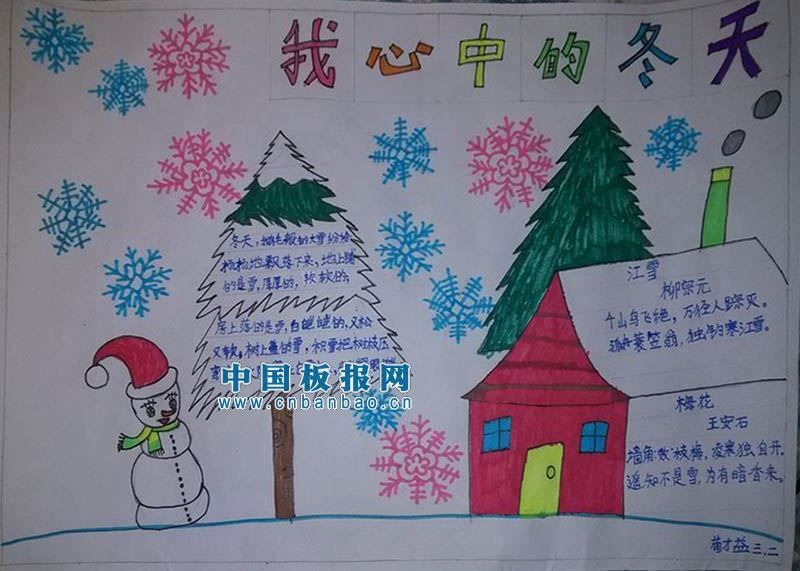 我心中的冬天
冬天,鹅毛般的大雪纷纷
扬扬地飘落下来,地上踏
的是雪,厚厚的,软软的;
房上落的是雪,白
的,又松
又软,树上盖的雪,积雪把树枝压
中国板报网
www.cnbanbao.cn
江雪
柳宗元
千山鸟飞绝,万径人踪灭。
孤舟蓑笠翁,独钓寒江雪。
梅花
王安石
墙角数枝梅,凌寒独自开。
遥知不是雪,为有暗香来。
三.二